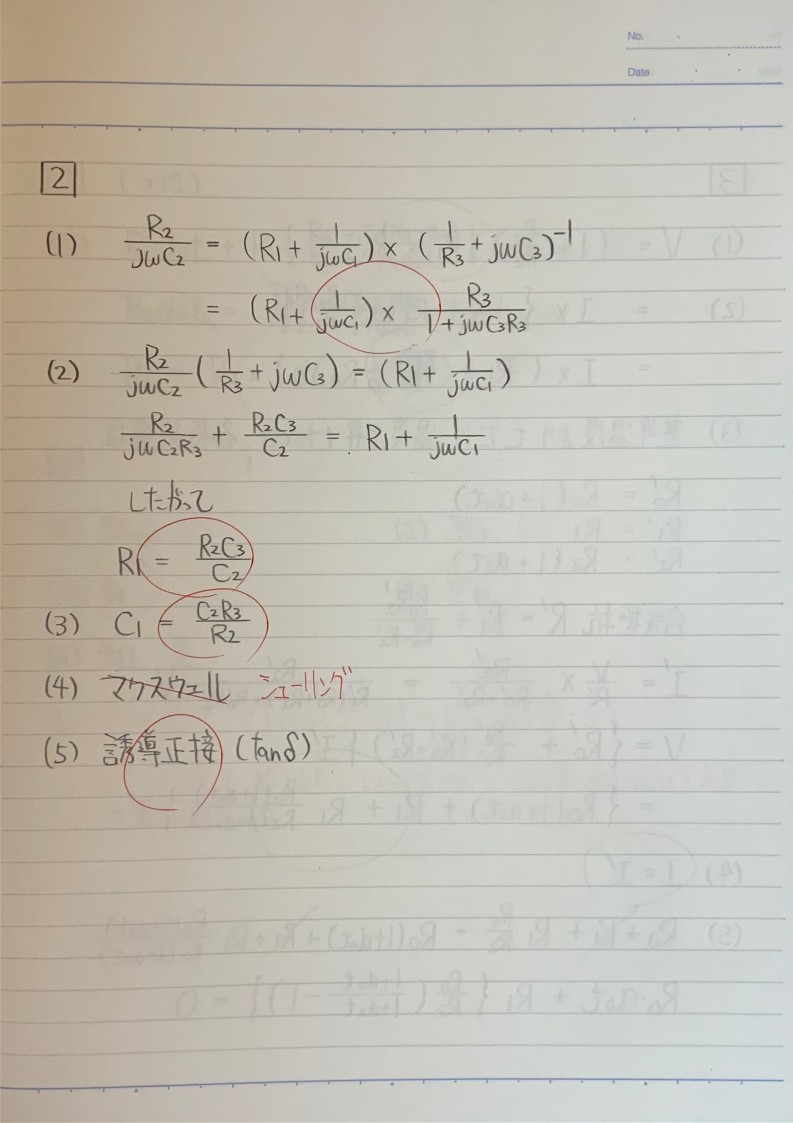 No.
Date
2
(1) R₂/jωC₂ = (R₁ + 1/jωC₁) × (1/R₃ + jωC₃)⁻¹
= (R₁ + 1/jωC₁) × R₃/1 + jωC₃R₃
(2) R₂/jωC₂ (1/R₃ + jωC₃) = (R₁ + 1/jωC₁)
R₂/jωC₂R₃ + R₂C₃/C₂ = R₁ + 1/jωC₁
したがって
R₁ = R₂C₃/C₂
(3) C₁ = C₂R₃/R₂
(4) マクスウェル シューリング
(5) 誘導正接 (tanδ)